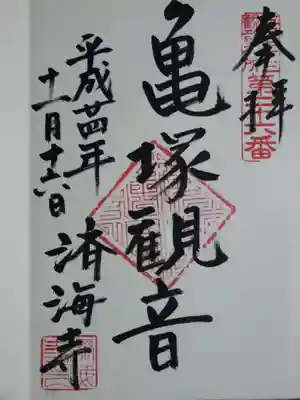 奉拝
第廿六番
亀塚観音
平成廿四年
十一月十六日
済海寺